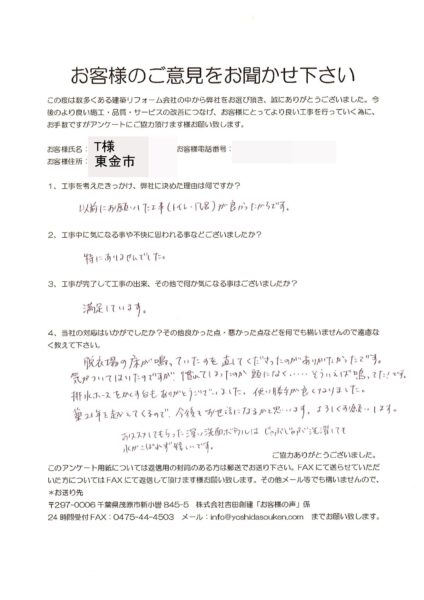 お客様のご意見をお聞かせ下さい
この度は数多くある建築リフォーム会社の中から弊社をお選び頂き、誠にありがとうございました。今
後のより良い施工・品質・サービスの改善につなげ、お客様にとってより良い工事を行っていく為に、
お手数ですがアンケートにご協力頂けます様お願い致します。
お客様氏名：T様 お客様電話番号：
お客様住所：東金市
1、工事を考えたきっかけ、弊社に決めた理由は何ですか？
以前にお願いした工事(トイレ・風呂)が良かったからです。
2、工事中に気になる事や不快に思われる事などございましたか？
特にありませんでした。
3、工事が完了して工事の出来、その他で何か気になる事はございましたか？
満足しています。
4、当社の対応はいかがでしたか？その他良かった点・悪かった点などを何でも構いませんので遠慮な
く教えて下さい。
脱衣場の床が鳴っていたのを直してくださったのがありがたかったです。
気がついてはいたのですが、慣れてしまったのか 気にもなく・・・・そういえば鳴ってた!です。
排水ホースをかくす台もありがとうございました。使い勝手が良くなりました。
築21年を起えてくるので、今後もお世話になるかと思います。よろしくお願いします。
おススメしてもらった深い洗面ボウルはじゃぶじゃぶ洗濯しても
水がこぼれず嬉しいです。
ご協力ありがとうございました。
このアンケート用紙については返信用の封筒のある方は郵送でお送り下さい。FAXにて送らせていただ
いた方についてはFAXにて返信して頂けます様お願い致します。その他メール等でも構いませんので、
*お送り先
〒297-0006 千葉県茂原市新小轡 845-5 株式会社吉田創建「お客様の声」係
24時間受付FAX：0475-44-4503 メール：info@yoshidasouken.com までお願い致します。